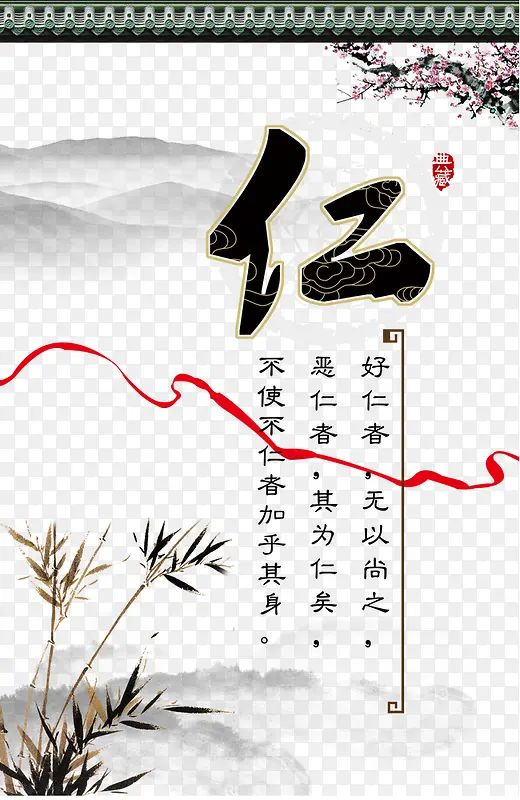 仁
典藏
好仁者,无以尚之,
恶仁者,其为仁矣,
不使不仁者加乎其身。